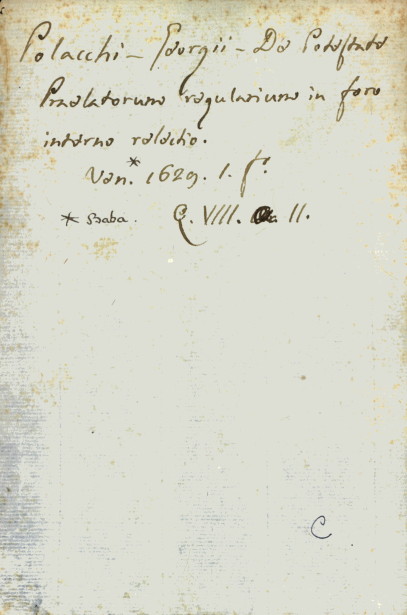 Polacchi - Georgii - De Potestate
Praelatorum regularium in foro
interno relectio.
Ven.* 1629. 1. f.°
* Baba. C. VIII. 11.
C